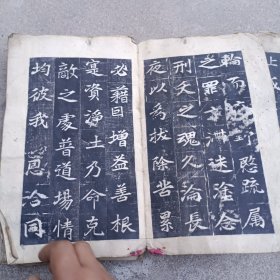 上
輪而愍疏属
之罪方滯迷塗念
刑天之魂久淪長
夜以為拔除苦累
必藉回增益善根
寔資淨土乃命克
敵之處普道場情
均彼我恩洽同